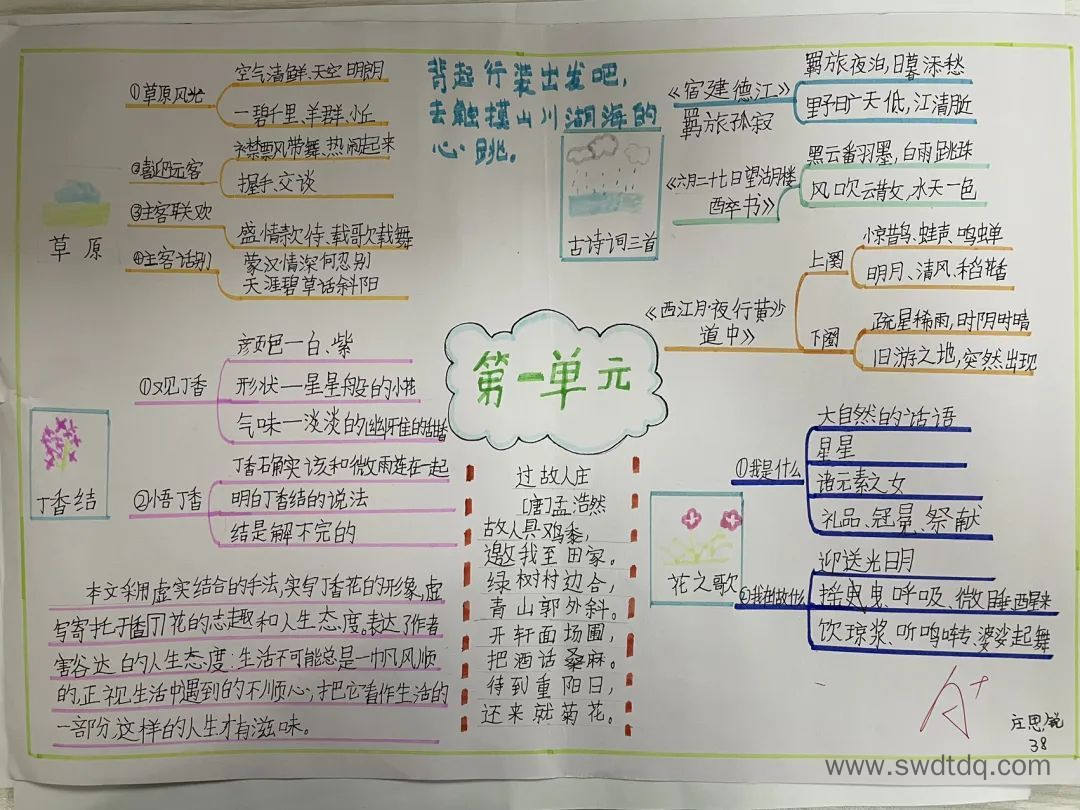 背起行装出发吧,
去触摸山川湖海的
心跳。
第一单元
草原
①草原风光
空气清鲜、天空明朗
一碧千里、羊群、小丘
②喜迎远客
襟飘带舞、热闹起来
握手、交谈
③主客联欢
盛情款待、载歌载舞
④主客话别
蒙汉情深何忍别
天涯碧草话斜阳
古诗词三首
《宿建德江》
羁旅孤寂
羁旅夜泊,日暮添愁
野旷天低,江清月近
《六月二十七日望湖楼
醉书》
黑云翻墨,白雨跳珠
风吹云散,水天一色
《西江月·夜行黄沙
道中》
上阕
惊鹊、蛙声、鸣蝉
明月、清风、稻花香
下阕
疏星稀雨,时阴时晴
旧游之地,突然出现
丁香结
①又见丁香
颜色—白、紫
形状—星星般的小花
气味—淡淡的幽雅的甜香
②悟丁香
丁香确实该和微雨连在一起
明白丁香结的说法
结是解不完的
本文采用虚实结合的手法,实写丁香花的形象,虚
写寄托于丁香花的志趣和人生态度。表达了作者
豁达的人生态度:生活不可能总是一帆风顺
的,正视生活中遇到的不顺心,把它看作生活的
一部分,这样的人生才有滋味。
过故人庄
[唐]孟浩然
故人具鸡黍,
邀我至田家。
绿树村边合,
青山郭外斜。
开轩面场圃,
把酒话桑麻。
待到重阳日,
还来就菊花。
花之歌
①我是什么
大自然的话语
星星
诸元素之女
礼品、冠冕、祭献
②我在做什么
迎送光明
摇曳、呼吸、微睡醒来
饮琼浆、听鸣啭、婆娑起舞
A+
汪思锐
38
www.swdtdq.com